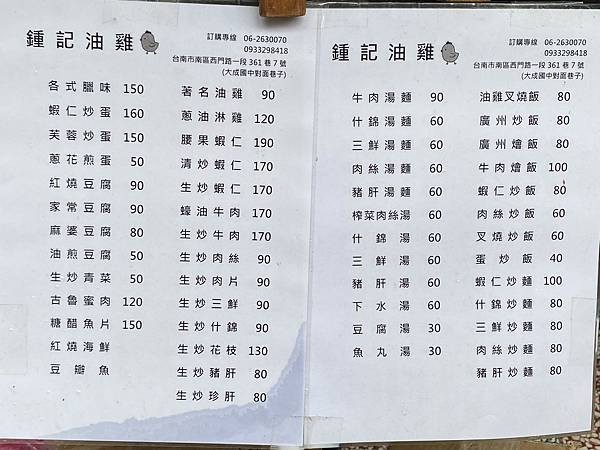 鍾記油雞
訂購專線 06-2630070
0933298418
台南市南區西門路一段 361 巷 7 號
(大成國中對面巷子)
各式臘味 150
蝦仁炒蛋 160
芙蓉炒蛋 150
蔥花煎蛋 50
紅燒豆腐 90
家常豆腐 90
麻婆豆腐 80
油煎豆腐 50
生炒青菜 50
古魯蜜肉 120
糖醋魚片 150
紅燒海鮮
豆瓣魚
著名油雞 90
蔥油淋雞 120
腰果蝦仁 190
清炒蝦仁 170
生炒蝦仁 170
蠔油牛肉 170
生炒牛肉 170
生炒肉絲 90
生炒肉片 90
生炒三鮮 90
生炒什錦 90
生炒花枝 130
生炒豬肝 80
生炒珍肝 80
鍾記油雞
訂購專線 06-2630070
0933298418
台南市南區西門路一段 361 巷 7 號
(大成國中對面巷子)
牛肉湯麵 90
什錦湯麵 60
三鮮湯麵 60
肉絲湯麵 60
豬肝湯麵 60
榨菜肉絲湯 60
什錦湯 60
三鮮湯 60
豬肝湯 60
下水湯 60
豆腐湯 30
魚丸湯 30
油雞叉燒飯 80
廣州炒飯 80
廣州燴飯 80
牛肉燴飯 100
蝦仁炒飯 80
肉絲炒飯 60
叉燒炒飯 60
蛋炒飯 40
蝦仁炒麵 100
什錦炒麵 80
三鮮炒麵 80
肉絲炒麵 80
豬肝炒麵 80